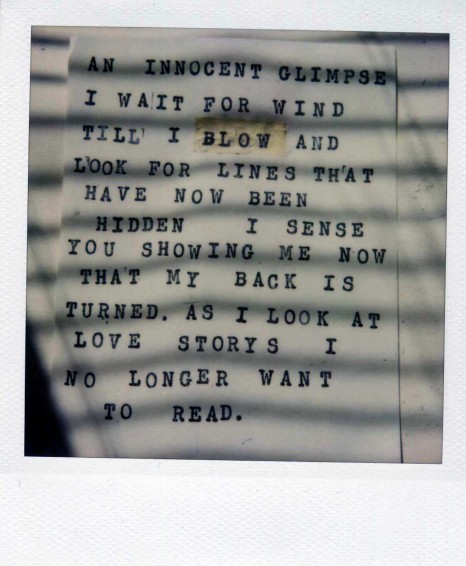 AN INNOCENT GLIMPSE
I WAIT FOR WIND
TILL I BLOW AND
LOOK FOR LINES THAT
HAVE NOW BEEN
HIDDEN I SENSE
YOU SHOWING ME NOW
THAT MY BACK IS
TURNED. AS I LOOK AT
LOVE STORYS I
NO LONGER WANT
TO READ.